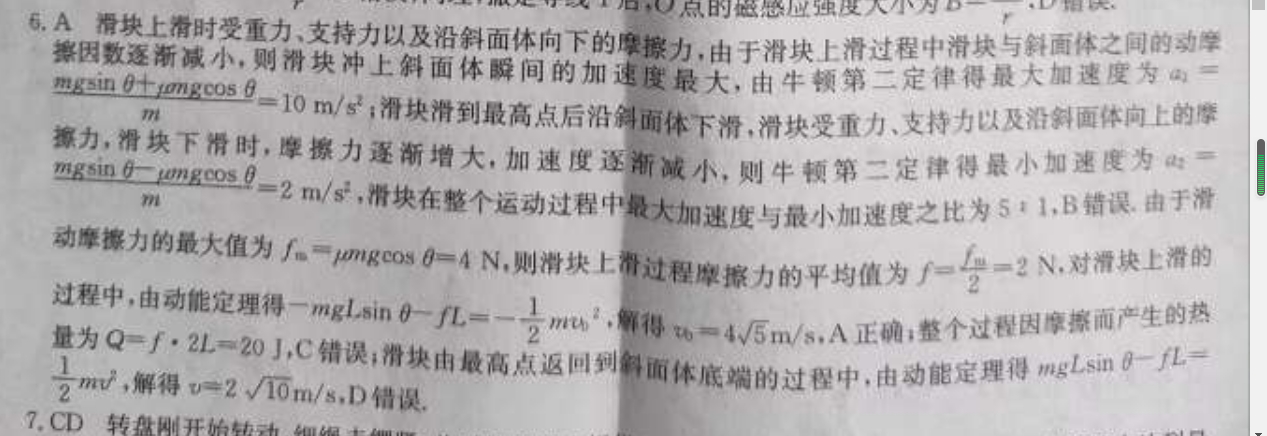 O点的磁感应强度大小为B=
6. A 滑块上滑时受重力、支持力以及沿斜面体向下的摩擦力,由于滑块上滑过程中滑块与斜面体之间的动摩
擦因数逐渐减小,则滑块冲上斜面体瞬间的加速度最大,由牛顿第二定律得最大加速度为 a₁ =
(mgsin θ+μmgcos θ)/m=10 m/s²;滑块滑到最高点后沿斜面体下滑,滑块受重力、支持力以及沿斜面体向上的摩
擦力,滑块下滑时,摩擦力逐渐增大,加速度逐渐减小,则牛顿第二定律得最小加速度为 a₂ =
(mgsin θ-μmgcos θ)/m=2 m/s²,滑块在整个运动过程中最大加速度与最小加速度之比为5:1,B错误.由于滑
动摩擦力的最大值为 fₘ=μmgcos θ=4 N,则滑块上滑过程摩擦力的平均值为 f=fₘ/2=2 N,对滑块上滑的
过程中,由动能定理得-mgLsin θ-fL=-1/2 mv₀²,解得 v₀=4√5 m/s,A正确;整个过程因摩擦而产生的热
量为 Q=f·2L=20 J,C错误;滑块由最高点返回到斜面体底端的过程中,由动能定理得 mgLsin θ-fL=
1/2 mv²,解得 v=2√10 m/s,D错误.
7. CD 转盘刚开始转动